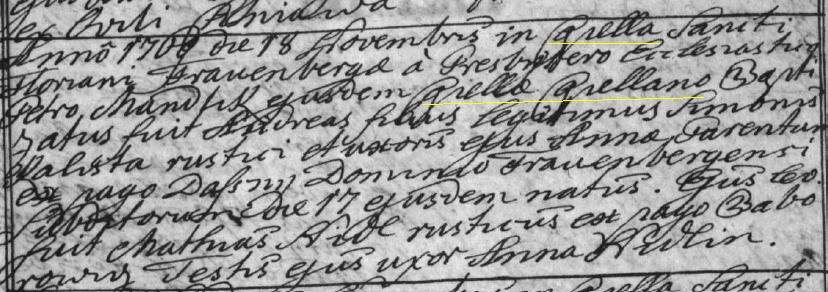 ex Civili
Anno 1708 die 18 Novembris in Capella Sancti
Floriani Frauenbergæ à Presbytero Ecclesiastico
Petro ejusdem Capellæ Capellano Bapti
zatus fuit Andreas filius legitimus Simonis
Valista rustici et uxoris ejus Annæ Parentum
ex pago Dominio Frauenbergensi
Subditorum die 17 ejusdem natus. Ejus Leva
fuit Mathias Aidl rusticus ex pago Babo
rowiz Testis ejus uxor Anna Aidlin.
Capella Sancti